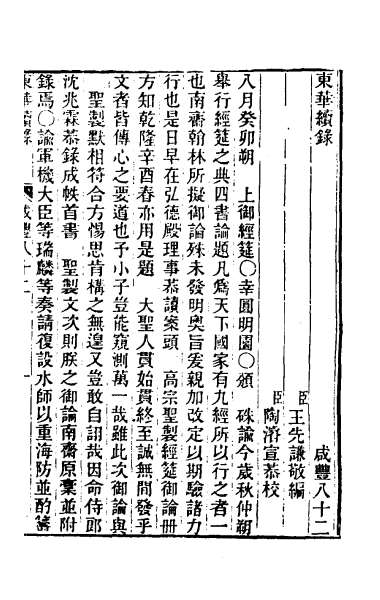 東華續錄
咸豐八十二
臣王先謙敬編
臣陶濬宣恭校
八月癸卯朔　上御經筵○幸圓明園○頒　硃諭今歲秋仲朔
舉行經筵之典四書論題凡為天下國家有九經所以行之者一
也南齋翰林所擬御論殊未發明奧旨爰親加改定以期驗諸力
行也是日早在弘德殿理事恭讀案頭　高宗聖製經筵御論冊
方知乾隆辛酉春亦用是題　大聖人貫始貫終至誠無間發乎
文者皆傳心之要道也予小子豈能窺測萬一哉雖此次御論與
聖製默相符合方惕思肯構之無遑又豈敢自詡哉因命侍郎
沈兆霖恭錄成帙首書　聖製文次則朕之御論南齋原稾並附
錄焉○諭軍機大臣等瑞麟等奏請復設水師以重海防並酌籌
東華續錄　咸豐八十二　一